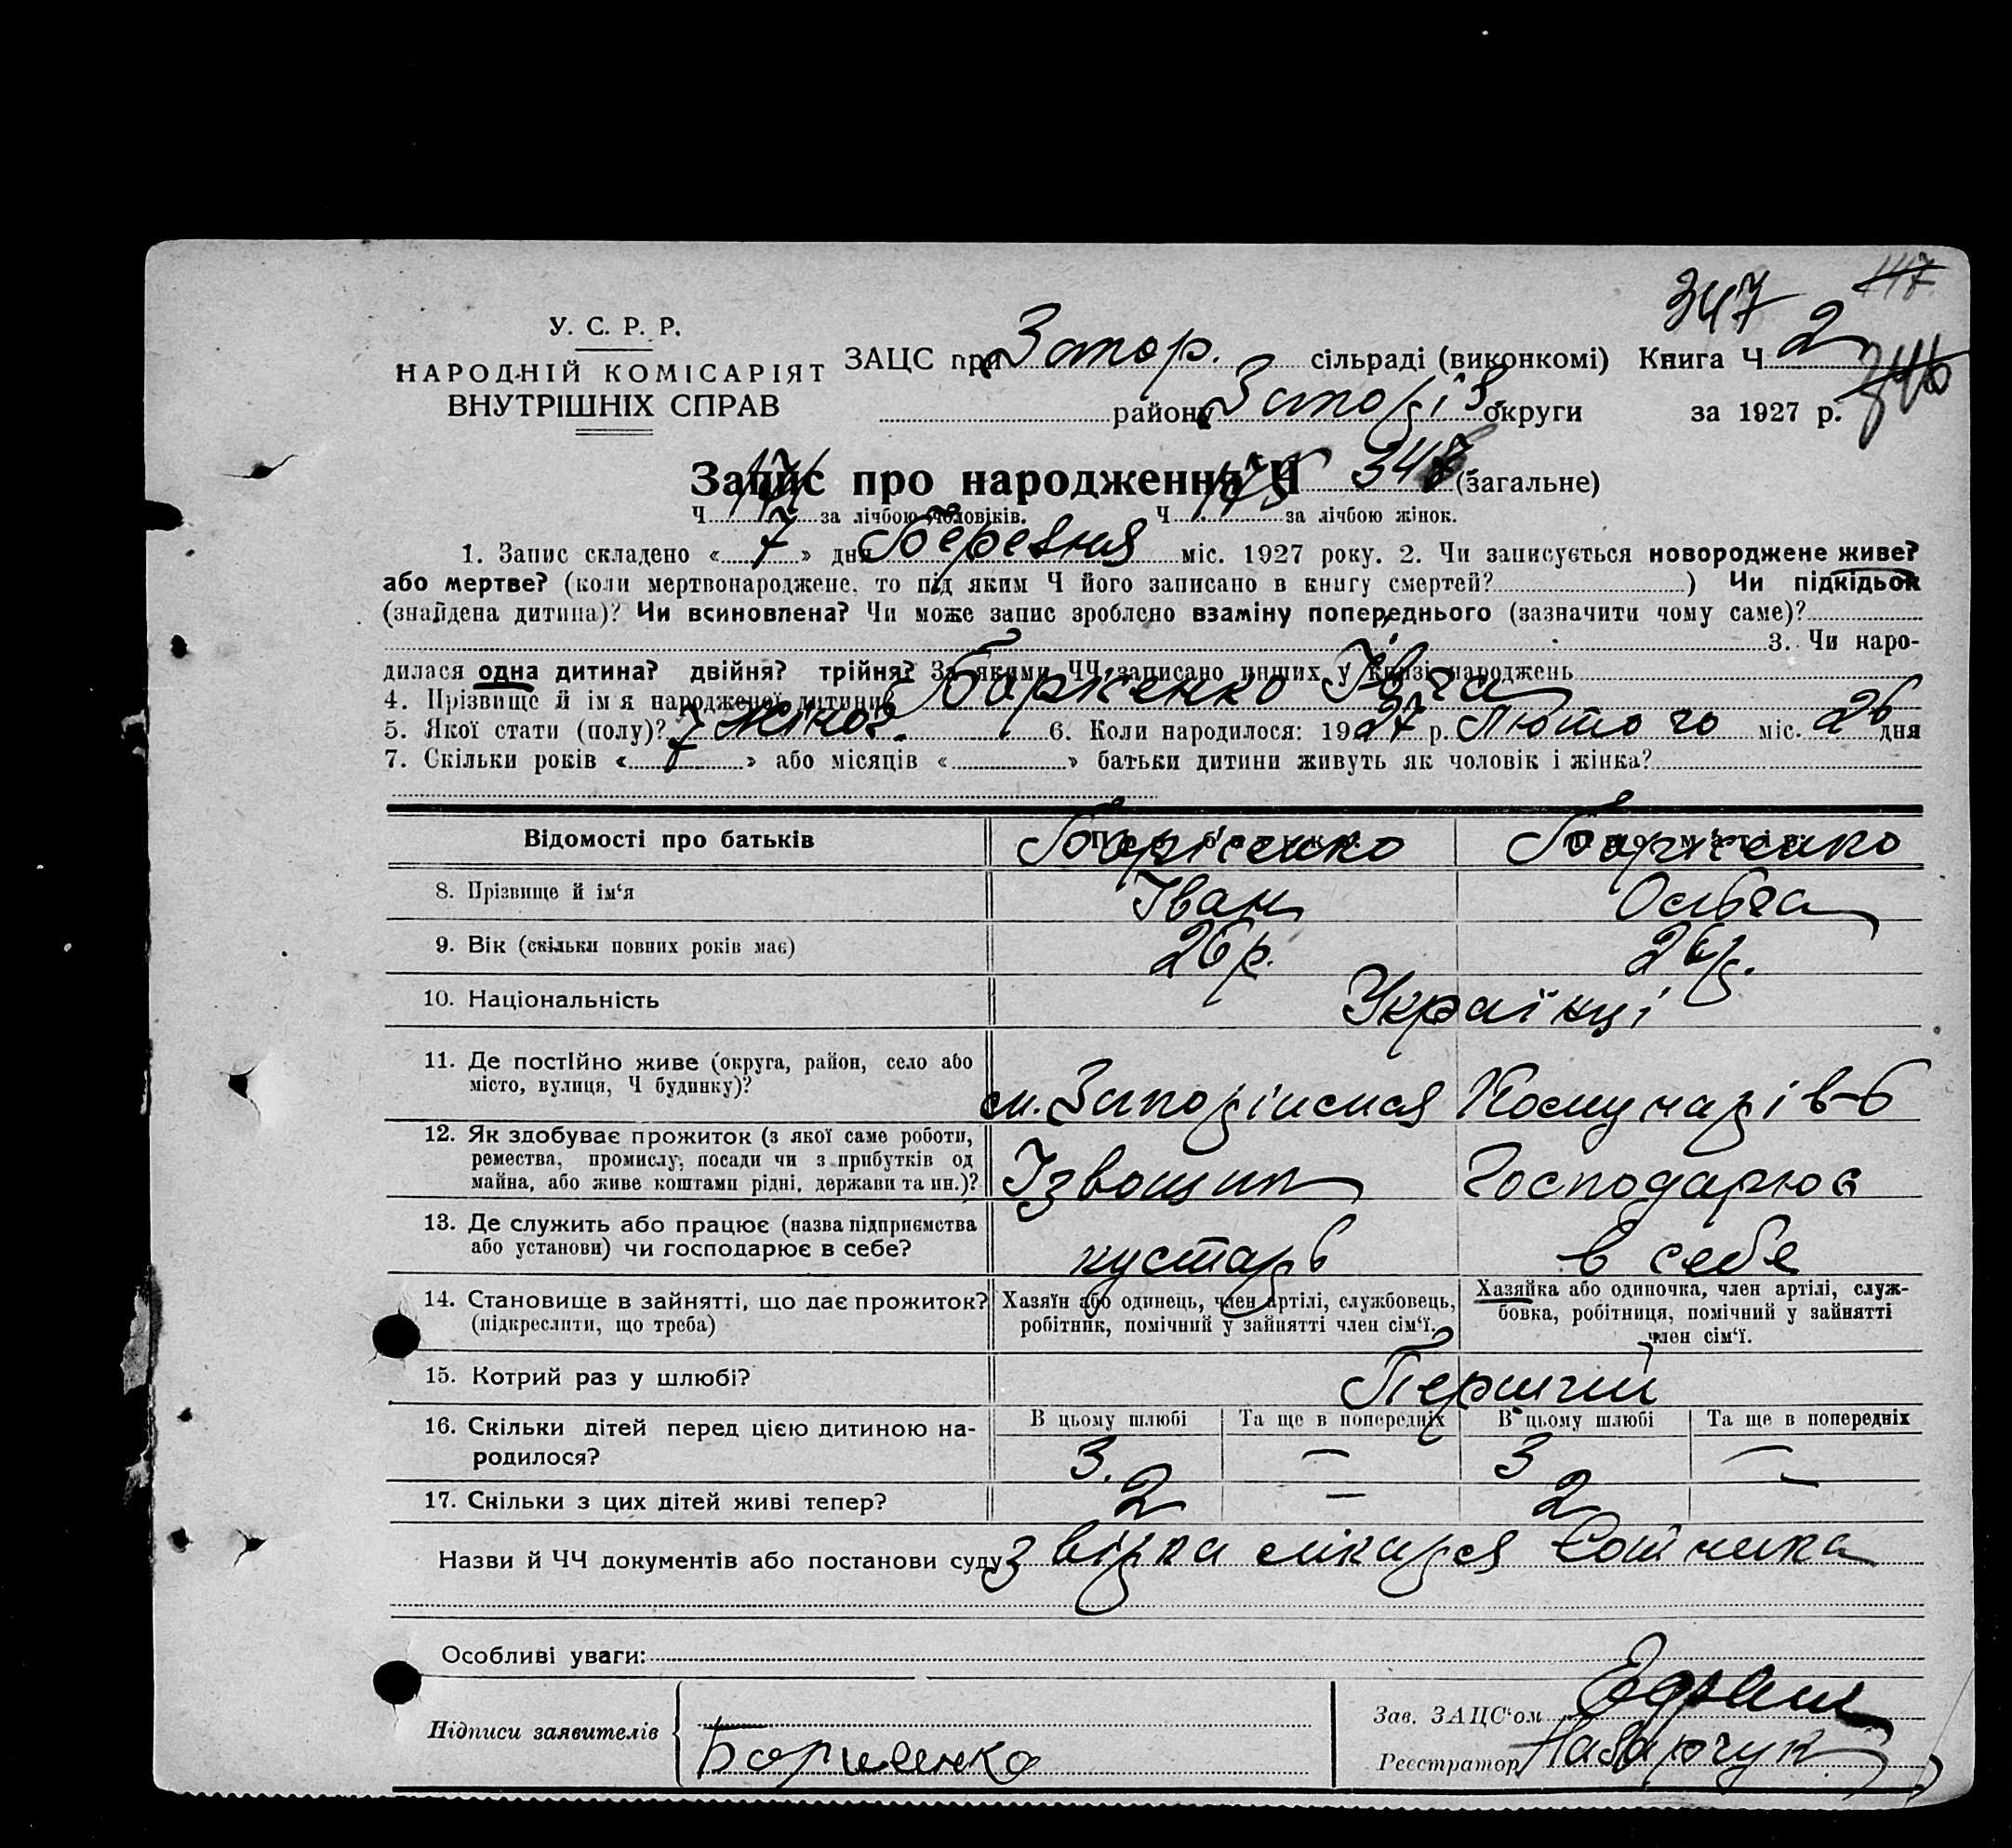 347 147
У. С. Р. Р.
НАРОДНІЙ КОМІСАРІЯТ
ВНУТРІШНІХ СПРАВ
ЗАЦС при Запор. сільраді (виконкомі) Книга Ч 2
району Запоріз округи за 1927 р. 346
Запис про народження Ч 347 (загальне)
Ч за лічбою чоловіків. Ч 175 за лічбою жінок.
1. Запис складено « 7 » дня Березня міс. 1927 року. 2. Чи записується новороджене живе?
або мертве? (коли мертвонароджене, то під яким Ч його записано в книгу смертей? ) Чи підкідьок
(знайдена дитина)? Чи всиновлена? Чи може запис зроблено взаміну попереднього (зазначити чому саме)?
3. Чи наро-
дилася одна дитина? двійня? трійня? За якими ЧЧ записано инших у книзі народжень
4. Прізвище й ім'я народженої дитини Борісенко
5. Якої стати (полу)? Жіноз. 6. Коли народилося: 1927 р. Лютого міс. 26 дня
7. Скільки років « 7 » або місяців « » батьки дитини живуть як чоловік і жінка?
Відомості про батьків Борісенко Борісенко
8. Прізвище й ім'я Іван Ольга
9. Вік (скільки повних років має) 26 р. 26 р.
10. Національність Українці
11. Де постійно живе (округа, район, село або
місто, вулиця, Ч будинку)? м. Запоріжжя Комунарів 6
12. Як здобуває прожиток (з якої саме роботи,
ремества, промислу, посади чи з прибутків од
майна, або живе коштами рідні, держави та ин.)? Ізвощик Господарює
13. Де служить або працює (назва підприємства
або установи) чи господарює в себе? кустарь в себе
14. Становище в зайнятті, що дає прожиток?
(підкреслити, що треба)
Хазяїн або одинець, член артілі, службовець,
робітник, помічний у зайнятті член сім'ї.
Хазяйка або одиночка, член артілі, служ-
бовка, робітниця, помічний у зайнятті
член сім'ї.
15. Котрий раз у шлюбі? Перший
16. Скільки дітей перед цією дитиною на-
родилося?
В цьому шлюбі Та ще в попередніх В цьому шлюбі Та ще в попередніх
3. — 3 —
17. Скільки з цих дітей живі тепер? 2 — 2 —
Назви й ЧЧ документів або постанови суду звірка лікаря
Особливі уваги:
Підписи заявителів
Борисенко
Зав. ЗАЦС'ом
Реєстратор Назарчук